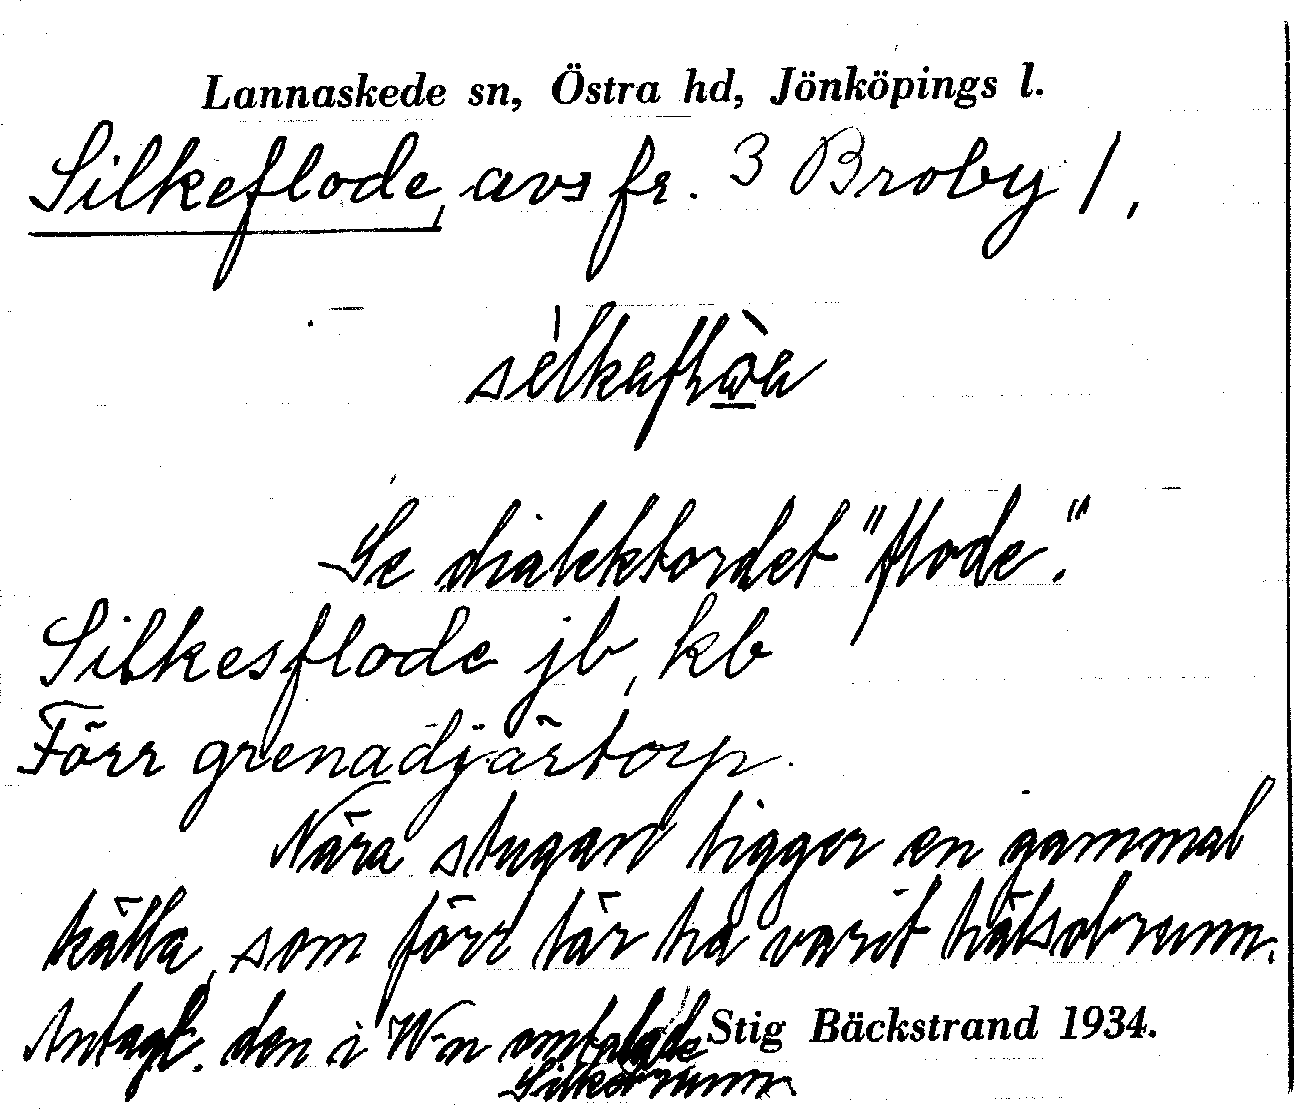 Lannaskede sn, Östra hd, Jönköpings l.
Silkeflode, avs fr. 3 Broby 1,
Se dialektordet "flode".
Silkesflode jb, kb
Förr grenadjärtorp.
Nära stugan ligger en gammal
källa, som förr lär ha varit hälsobrunn.
Antagl. den i W-n omtalade
Stig Bäckstrand 1934.
Silkebrunn